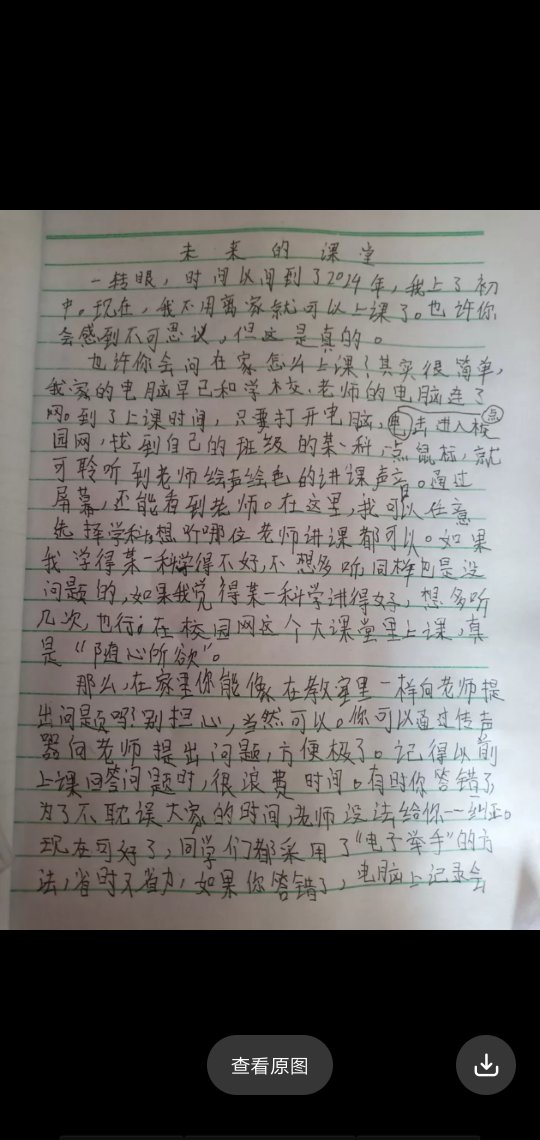 未来的课堂
一转眼，时间以间到了2024年，我上了初
中。现在，我不用离家就可以上课了。也许你
会感到不可思议，但这是真的。
也许你会问在家怎么上课？其实很简单，
我家的电脑早已和学校、老师的电脑连了
网。到了上课时间，只要打开电脑，单击进入校
点
园网，找到自己的班级的某一科，点鼠标，就
可聆听到老师绘声绘色的讲课声音。通过
屏幕，还能看到老师。在这里，我可以任意
选择学科，想听哪位老师讲课都可以。如果
我学得某一科学得不好，不想多听，同样也是没
问题的，如果我觉得某一科学讲得好，想多听
几次，也行；在校园网这个大课堂里上课，真
是“随心所欲”。
那么，在家里你能像在教室里一样向老师提
出问题吗？别担心，当然可以。你可以通过传声
器向老师提出问题，方便极了。记得以前
上课回答问题时，很浪费时间。有时你答错了，
为了不耽误大家的时间，老师没法给你一一纠正。
现在可好了，同学们都采用了“电子举手”的方
法，省时又省力，如果你答错了，电脑上记录会
查看原图